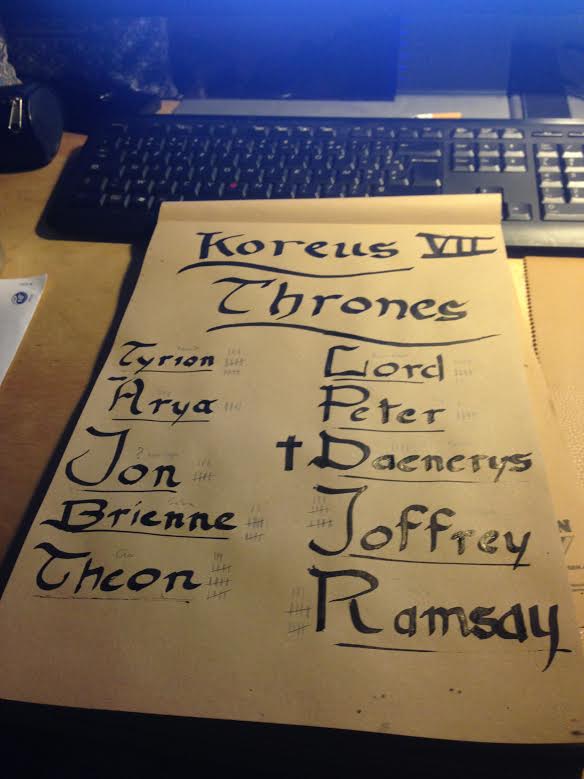 Koreus VII
Thrones
Tyrion
Arya
Jon
Brienne
Theon
Lord
Peter
Daenerys
Joffrey
Ramsay